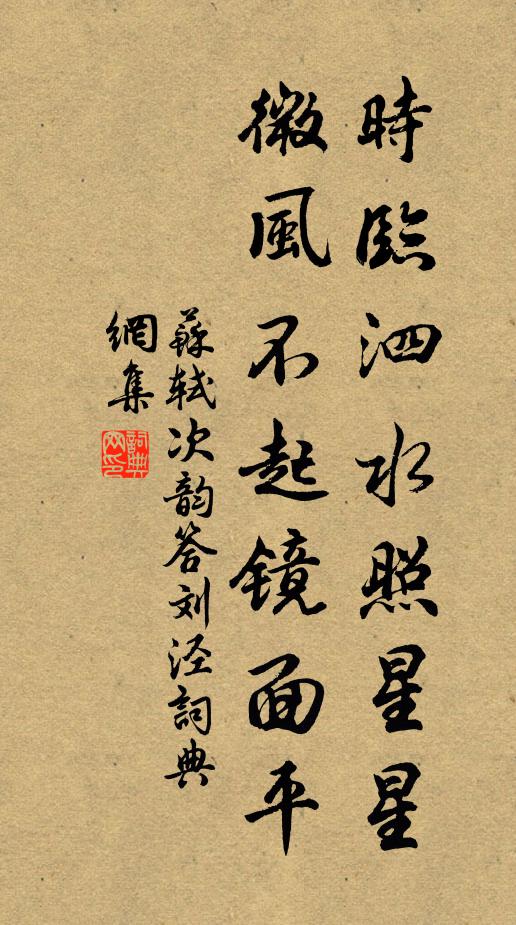 時臨泗水照星星
微風不起镜面平
蘇轼次韵答刘泾詞典
網集
詞典网印